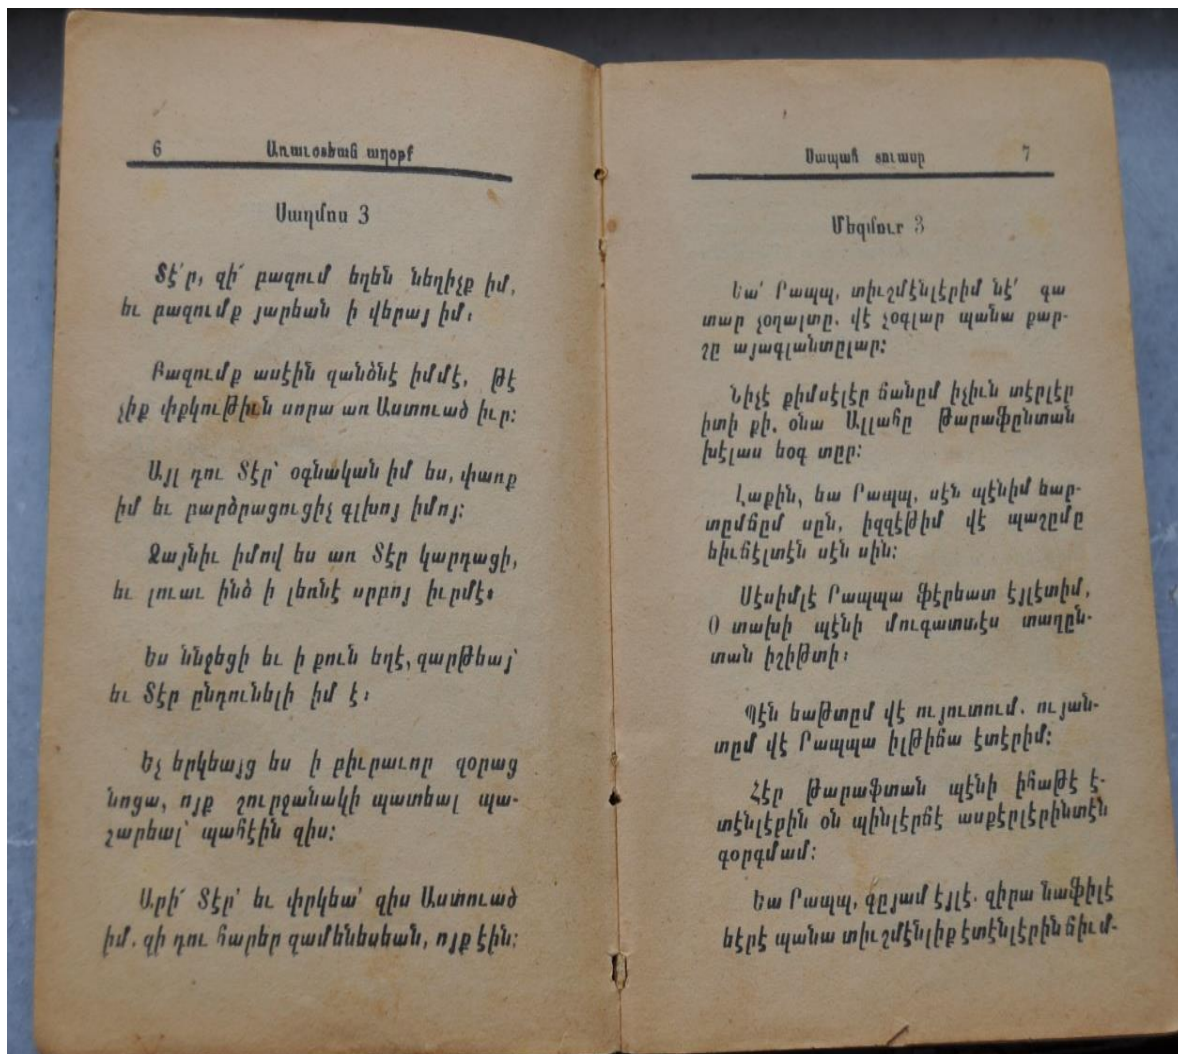 6 Առաւօտեան աղօթք
Սաղմոս 3
Տէ՛ր, զի՛ բազում եղեն նեղիչք իմ,
եւ բազումք յարեան ի վերայ իմ։
Բազումք ասէին զանձնէ իմմէ, թէ
չիք փրկութիւն սորա առ Աստուած իւր։
Այլ դու Տէր՝ օգնական իմ ես, փառք
իմ եւ բարձրացուցիչ գլխոյ իմոյ։
Ձայնիւ իմով ես առ Տէր կարդացի,
եւ լուաւ ինձ ի լեռնէ սրբոյ իւրմէ։
Ես ննջեցի եւ ի քուն եղէ, զարթեայ՝
եւ Տէր ընդունելի իմ է։
Եչ երկեայց ես ի բիւրաւոր զօրաց
նոցա, ոյք շուրջանակի պատեալ պա-
շարեալ՝ պահէին զիս։
Արի՛ Տէր՝ եւ փրկեա՛ զիս Աստուած
իմ. զի դու հարեր զամենեսեան, ոյք էին։
Սապահ տուասը 7
Մեզմուր 3
Եա՛ Րապպ, տիւշմէնլէրիմ նէ՛ գա
տար չօղալտը. վէ չօգլար պանա քար-
շը այագլանտըլար։
Նիչէ քիմսէլէր ճանըմ իչիւն տէրլէր
իտի քի, օնա Ալլահը թարաֆընտան
խէլաս եօգ տըր։
Լաքին, եա Րապպ, սէն պէնիմ եար-
տըմճըմ սըն, իզզէթիմ վէ պաշըմը
եիւճէլտէն սէն սին։
Սէսիմլէ Րապպա ֆէրեատ էյլէտիմ,
0 տախի պէնի մուգատտէս տաղըն-
տան իշիթտի։
Պէն եաթտըմ վէ ույուտում. ույան-
տըմ վէ Րապպա իլթիճա էտէրիմ։
Հէր թարաֆտան պէնի իհաթէ է-
տէնլէրին օն պինլէրճէ ասքէրլէրինտէն
գօրգմամ։
Եա Րապպ, գըյամ էյլէ. զիրա նաֆիլէ
եէրէ պանա տիւշմէնլիք էտէնլէրին ճիւմ-